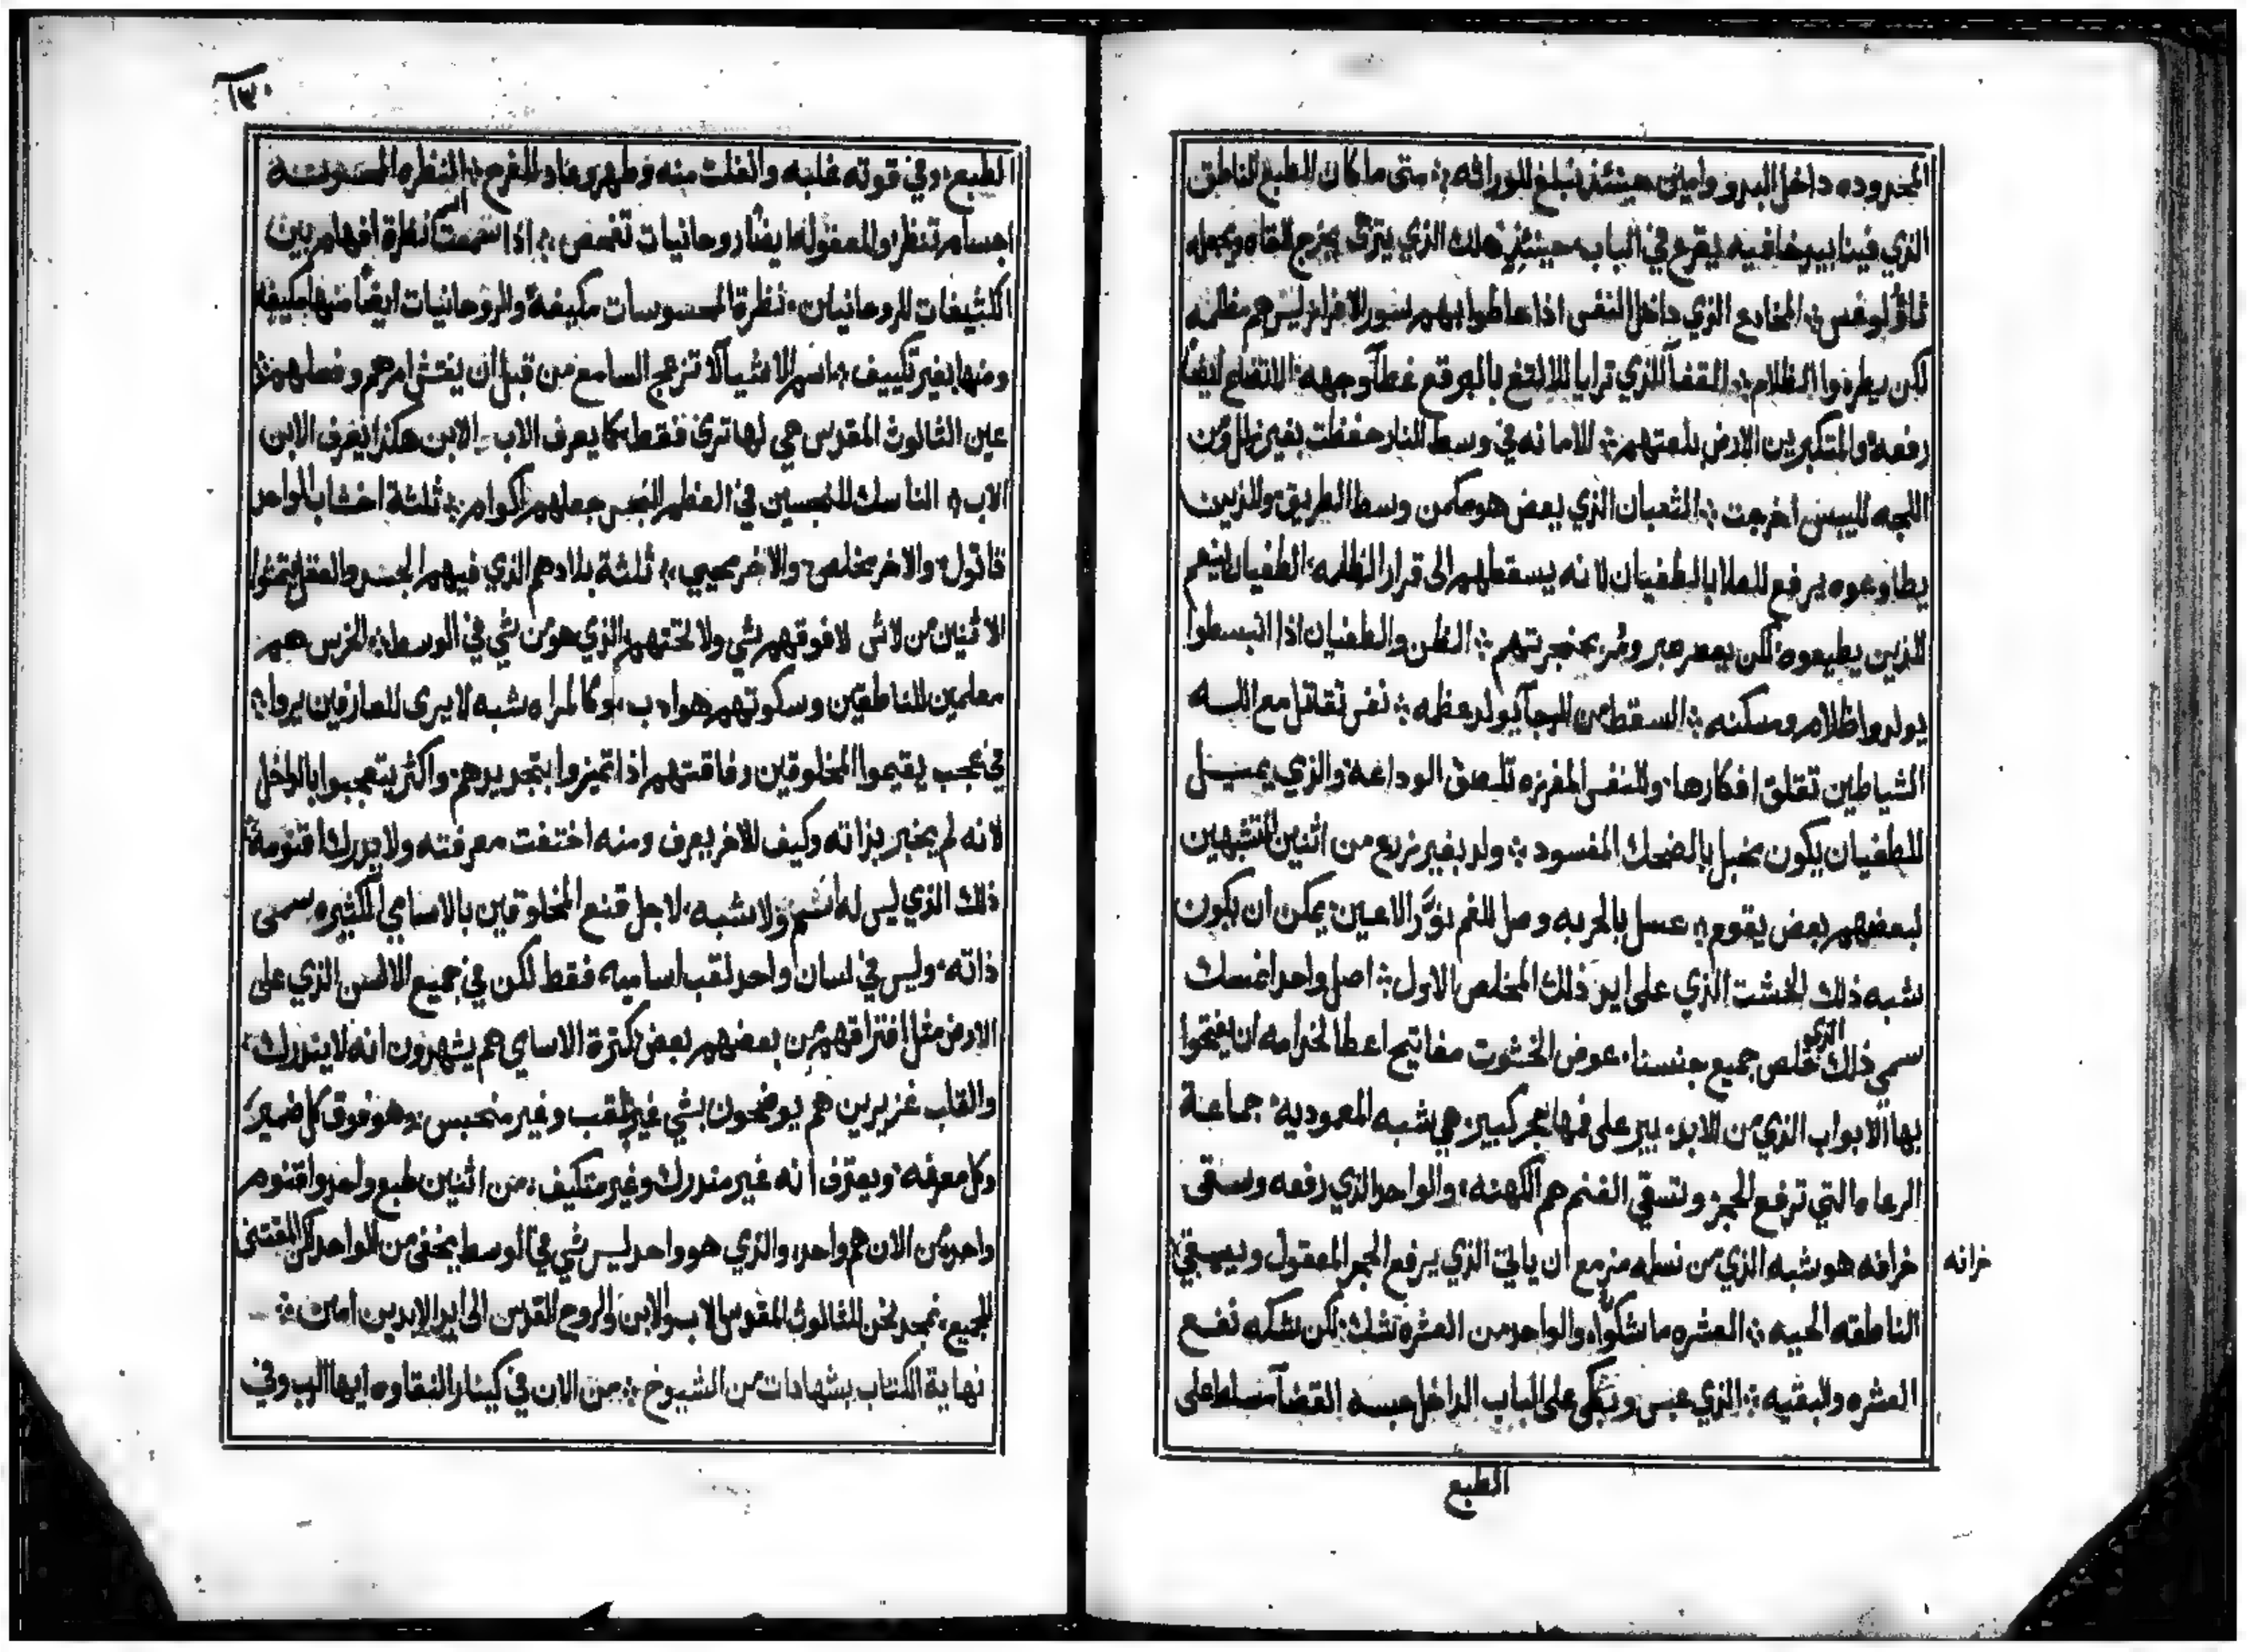 المحدوده داخل البدو وامين حينئذ تبلغ للوراثه ܀ متى ما كان الطبع الناطق
الذي فينا بيد خافيه يقرع في الباب حينئذ ذلك الذي يترك يخرج لتقاه ويجعله
ثاؤلوغس ܀ المخادع الذي داخل النفس اذا حاطوا بهم بنور الافراز ليس هم مظلمه
لكن يطردوا الظلام ܀ القضا الذي ترايا للالتغ بالبرقع غطا وجهه الاتضاع ايضا
رفعه والمتكبرين الارض بلعتهم ܀ الامانه في وسط النار حفظت بغير زلل ومن
اللجه لليبس اخرجت ܀ الثعبان الذي يعض هو مكمن وسط الطريق والذين
يطاوعوه يرفع للعلا بالطغيان لانه يسقطهم الى قرار الظلمه الطغيان ينعم
للذين يطيعوه لكن بعد صبر ومر بحنجرتهم ܀ الظن والطغيان اذا انبسطوا
يولدوا ظلام ومسكنه ܀ السقط من الرجا يولد عظمه ܀ نفس تقاتل مع الله
الشياطين تقلق افكارها والنفس المفرزه تلصق الوداعه والذي يميل
للطغيان يكون مخبل بالضحك المفسود ܀ ولد بغير زرع من اثنين المتشبهين
لبعضهم بعض يقوم ܀ عسل بالحربه وصل للفم نور الاعين يمكن ان يكون
شبه ذلك الخشت الذي على ايد ذلك المخلص الاول ܀ اصل واحد امسك
الذي
سمي ذلك خلص جميع جنسنا عوض الخشوت مفاتيح اعطا لخدامه ان يفتحوا
بها الابواب الذي من الابد بير على فمها حجر كبير هي شبه المعموديه جماعة
الرعاه التي ترفع الحجر وتسقي الغنم هم الكهنه والواحد الذي رفعه وسقى
خرافه هو شبه الذي من نسله مزمع ان ياتي الذي يرفع الحجر المعقول ويسقي
خرافه
الناطقه الحييه ܀ العشره ما شكوا والواحد من العشره تشك لكن شكه نفع
العشره والبقيه ܀ الذي عبس وبكى على الباب الداخل حبسه القضا مسلط على
الطبع
١٣٠
الطبع وفي قوته غلبه وانفلت منه وطهر وعاد للفرح ܀ النظره المحسوسه
اجسام تنظر والمعقوله ايضا روحانيات تفحص ܀ اذا سمعت نظرة افهام بين
اسم
الكثيفات للروحانيين نظرة المحسوسات مكيفه والروحانيات ايضا منها بكيفه
ومنها بغير تكييف ܀ اسم الاشيا لا تزعج السامع من قبل ان يفتش امرهم وفصلهم
عين الثالوث المقدس هي لها ترى فقط كما يعرف الاب الابن هكذا يعرف الابن
الاب ܀ الناسك للنجسين في العظم النجس جعلهم اكوام ܀ ثلثة اخشاب الواحد
قاتول والاخر مخلص والاخر محيي ܀ ثلثة بلادهم الذي فيهم الجسد والعقل يتمثوا
الاثنين من لاشي لا فوقهم شي ولا تحتهم الذي هو من شي في الوسط ܀ الخرس هم
معلمين للناطقين وسكوتهم هو ادب هو كالمراه شبه لا يرى للعارفين يروا ܀
في عجب يقيموا المخلوقين رفاقتهم اذا تميزوا بتجديدهم واكثر يتعجبوا بالداخل
لانه لم يخبر بذاته وكيف للاخر يعرف ومنه اختفت معرفته ولا يدرك اقنومه
ذلك الذي ليس له اسم ولا شبه لاجل قنع المخلوقين بالاسامي الكثيره سمى
ذاته وليس في لسان واحد لقب اساميه فقط لكن في جميع الالسن الذي على
الارض مثل افتراقهم من بعضهم بعض كثرة الاسامي هم يشهدون انه لا يندرك
والقاب غزيرين هم يوضحون بشي غير ملقب وغير منحبس وهو فوق كل ضمير
وكل معرفه ويعترف انه غير مندرك وغير متكيف ܀ من اثنين طبع واحد واقنوم
واحد من الان هم واحد والذي هو واحد ليس شي في الوسط يختفي من الواحد لكن المقتني
الجميع نمجد نحن للثالوث المقدس الاب والابن والروح القدس الى ابد الابدين امين ܀
نهاية الكتاب بشهادات من الشيوخ ܀ من الان في كينار النقاوه ايها الرب وفي